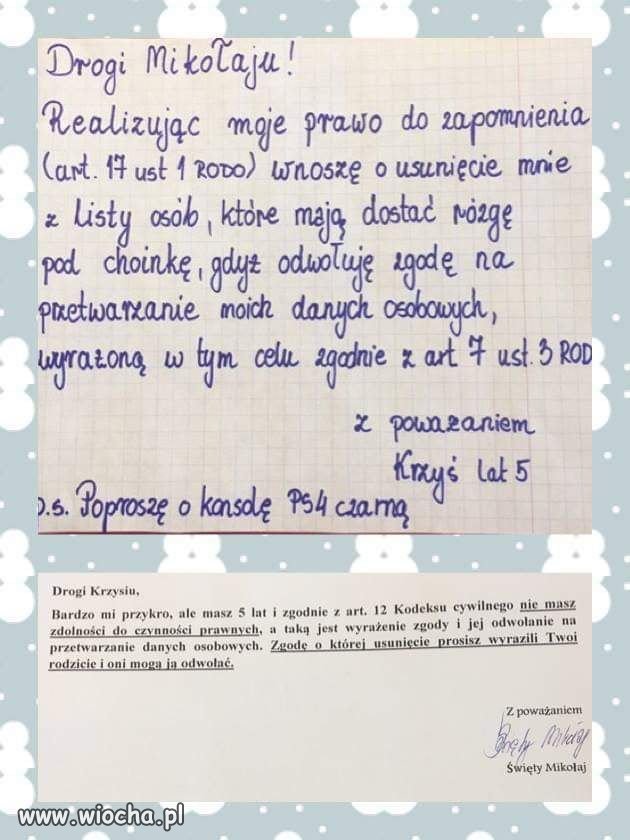 Drogi Mikołaju!
Realizując moje prawo do zapomnienia
(art. 17 ust 1 RODO) wnoszę o usunięcie mnie
z listy osób, które mają dostać rózgę
pod choinkę, gdyż odwołuję zgodę na
przetwarzanie moich danych osobowych,
wyrażoną w tym celu zgodnie z art 7 ust. 3 ROD
z poważaniem
Krzyś lat 5
p.s. Poproszę o konsolę PS4 czarną
Drogi Krzysiu,
Bardzo mi przykro, ale masz 5 lat i zgodnie z art. 12 Kodeksu cywilnego nie masz
zdolności do czynności prawnych, a taką jest wyrażenie zgody i jej odwołanie na
przetwarzanie danych osobowych. Zgodę o której usunięcie prosisz wyrazili Twoi
rodzicie i oni mogą ją odwołać.
Z poważaniem
Święty Mikołaj
Święty Mikołaj
www.wiocha.pl